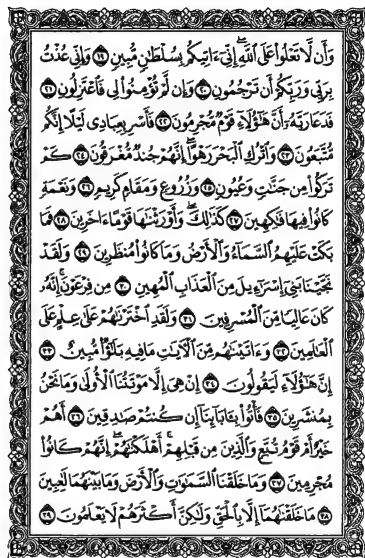 وَأَن لَّا تَعْلُوا۟ عَلَى ٱللَّهِ ۖ إِنِّىٓ ءَاتِيكُم بِسُلْطَٰنٍ مُّبِينٍ ١٩ وَإِنِّى عُذْتُ
بِرَبِّى وَرَبِّكُمْ أَن تَرْجُمُونِ ٢٠ وَإِن لَّمْ تُؤْمِنُوا۟ لِى فَٱعْتَزِلُونِ ٢١
فَدَعَا رَبَّهُۥٓ أَنَّ هَٰٓؤُلَآءِ قَوْمٌ مُّجْرِمُونَ ٢٢ فَأَسْرِ بِعِبَادِى لَيْلًا إِنَّكُم
مُّتَّبَعُونَ ٢٣ وَٱتْرُكِ ٱلْبَحْرَ رَهْوًا ۖ إِنَّهُمْ جُندٌ مُّغْرَقُونَ ٢٤ كَمْ
تَرَكُوا۟ مِن جَنَّٰتٍ وَعُيُونٍ ٢٥ وَزُرُوعٍ وَمَقَامٍ كَرِيمٍ ٢٦ وَنَعْمَةٍ
كَانُوا۟ فِيهَا فَٰكِهِينَ ٢٧ كَذَٰلِكَ ۖ وَأَوْرَثْنَٰهَا قَوْمًا ءَاخَرِينَ ٢٨ فَمَا
بَكَتْ عَلَيْهِمُ ٱلسَّمَآءُ وَٱلْأَرْضُ وَمَا كَانُوا۟ مُنظَرِينَ ٢٩ وَلَقَدْ
نَجَّيْنَا بَنِىٓ إِسْرَٰٓءِيلَ مِنَ ٱلْعَذَابِ ٱلْمُهِينِ ٣٠ مِن فِرْعَوْنَ ۚ إِنَّهُۥ
كَانَ عَالِيًا مِّنَ ٱلْمُسْرِفِينَ ٣١ وَلَقَدِ ٱخْتَرْنَٰهُمْ عَلَىٰ عِلْمٍ عَلَى
ٱلْعَٰلَمِينَ ٣٢ وَءَاتَيْنَٰهُم مِّنَ ٱلْءَايَٰتِ مَا فِيهِ بَلَٰٓؤٌا۟ مُّبِينٌ ٣٣
إِنَّ هَٰٓؤُلَآءِ لَيَقُولُونَ ٣٤ إِنْ هِىَ إِلَّا مَوْتَتُنَا ٱلْأُولَىٰ وَمَا نَحْنُ
بِمُنشَرِينَ ٣٥ فَأْتُوا۟ بِـَٔابَآئِنَآ إِن كُنتُمْ صَٰدِقِينَ ٣٦ أَهُمْ
خَيْرٌ أَمْ قَوْمُ تُبَّعٍ وَٱلَّذِينَ مِن قَبْلِهِمْ ۚ أَهْلَكْنَٰهُمْ ۖ إِنَّهُمْ كَانُوا۟
مُجْرِمِينَ ٣٧ وَمَا خَلَقْنَا ٱلسَّمَٰوَٰتِ وَٱلْأَرْضَ وَمَا بَيْنَهُمَا لَٰعِبِينَ
٣٨ مَا خَلَقْنَٰهُمَآ إِلَّا بِٱلْحَقِّ وَلَٰكِنَّ أَكْثَرَهُمْ لَا يَعْلَمُونَ ٣٩